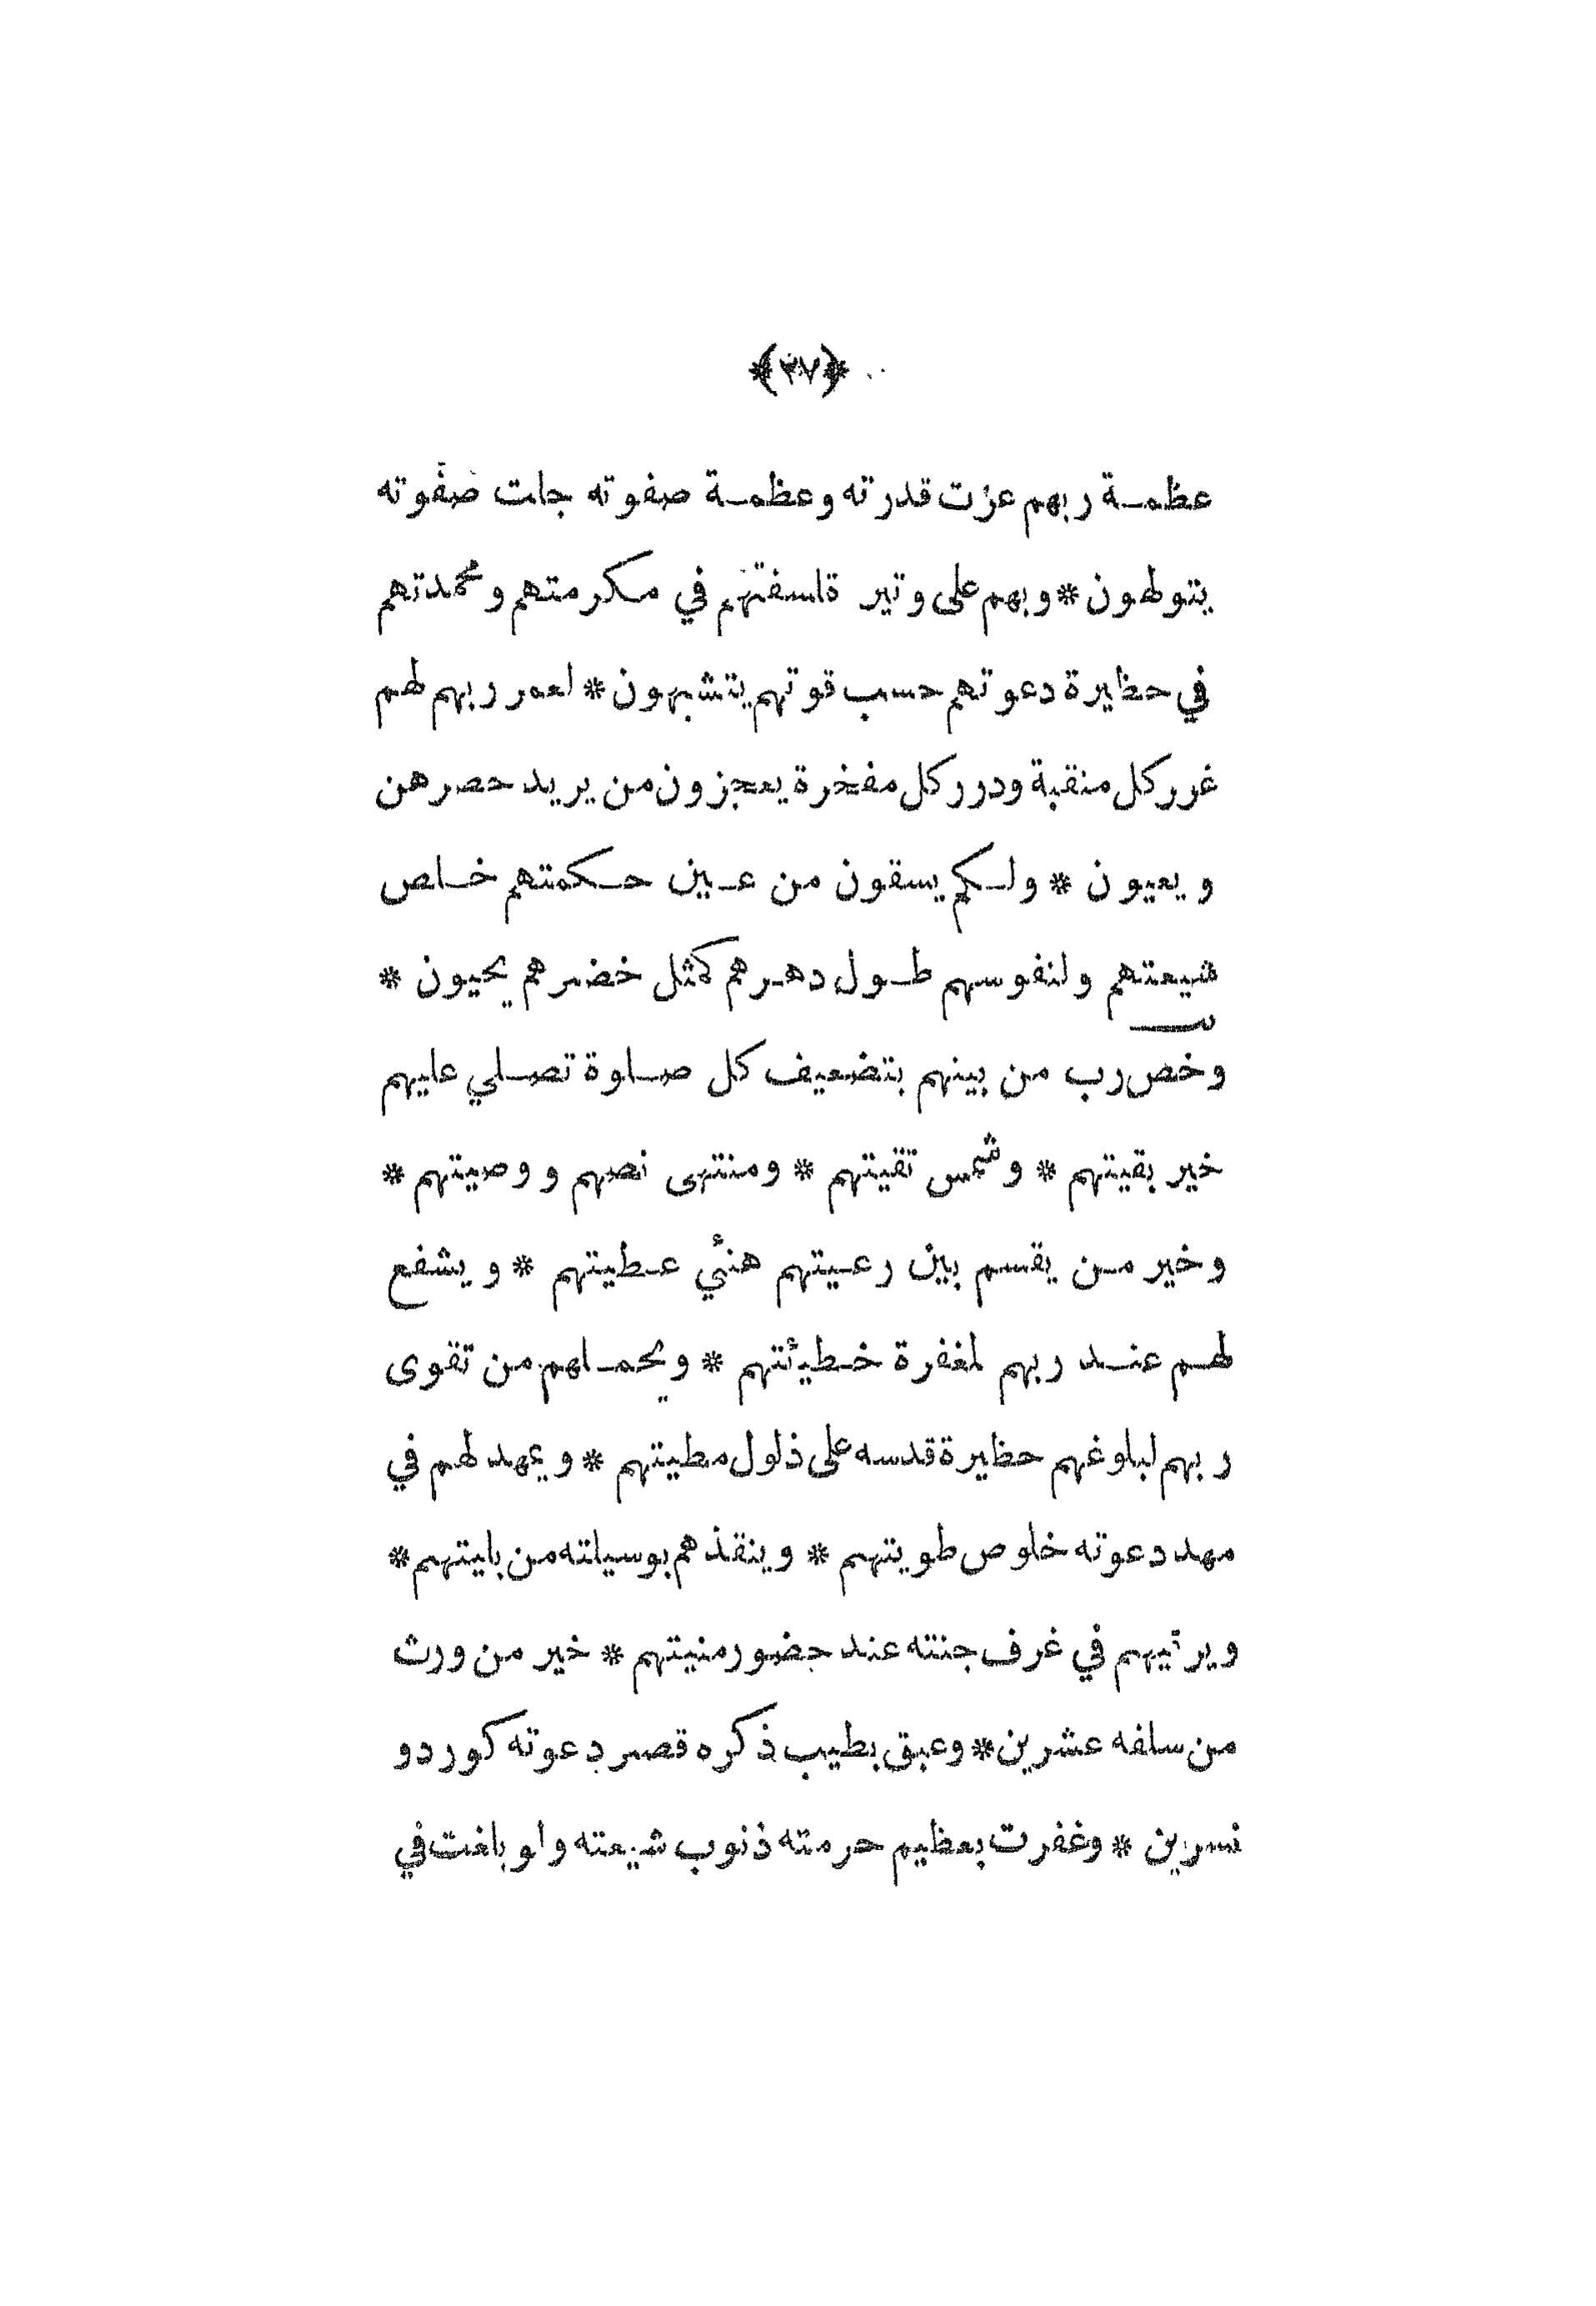 ﴿٣٧﴾
عظمة ربهم عزت قدرته وعظمة صفوته جلت صفوته
يتولهون * وبهم على وتيرة سلفتهم في مكرمتهم ومحمدتهم
في حظيرة دعوتهم حسب قوتهم يتشبهون * لعمر ربهم لهم
غرر كل منقبة ودرر كل مفخرة يعجزون من يريد حصرهن
ويعيون * ولكم يسقون من عين حكمتهم خلص
شيعتهم ولنفوسهم طول دهرهم كمثل خضرهم يحيون *
وخص رب من بينهم بتضعيف كل صلوة تصلي عليهم
خير بقيتهم * وشمس تقيتهم * ومنتهى نصهم ووصيتهم *
وخير من يقسم بين رعيتهم هنئي عطيتهم * ويشفع
لهم عند ربهم لمغفرة خطيئتهم * ويحملهم من تقوى
ربهم لبلوغهم حظيرة قدسه على ذلول مطيتهم * ويمهد لهم في
مهد دعوته خلوص طويتهم * وينقذهم بوسيلته من بليتهم *
ويرئيهم في غرف جنته عند حضور منيتهم * خير من ورث
من سلفه عشرين * وعبق بطيب ذكره قصر دعوته كورد و
نسرين * وغفرت بعظيم حرمته ذنوب شيعته ولو بلغت في